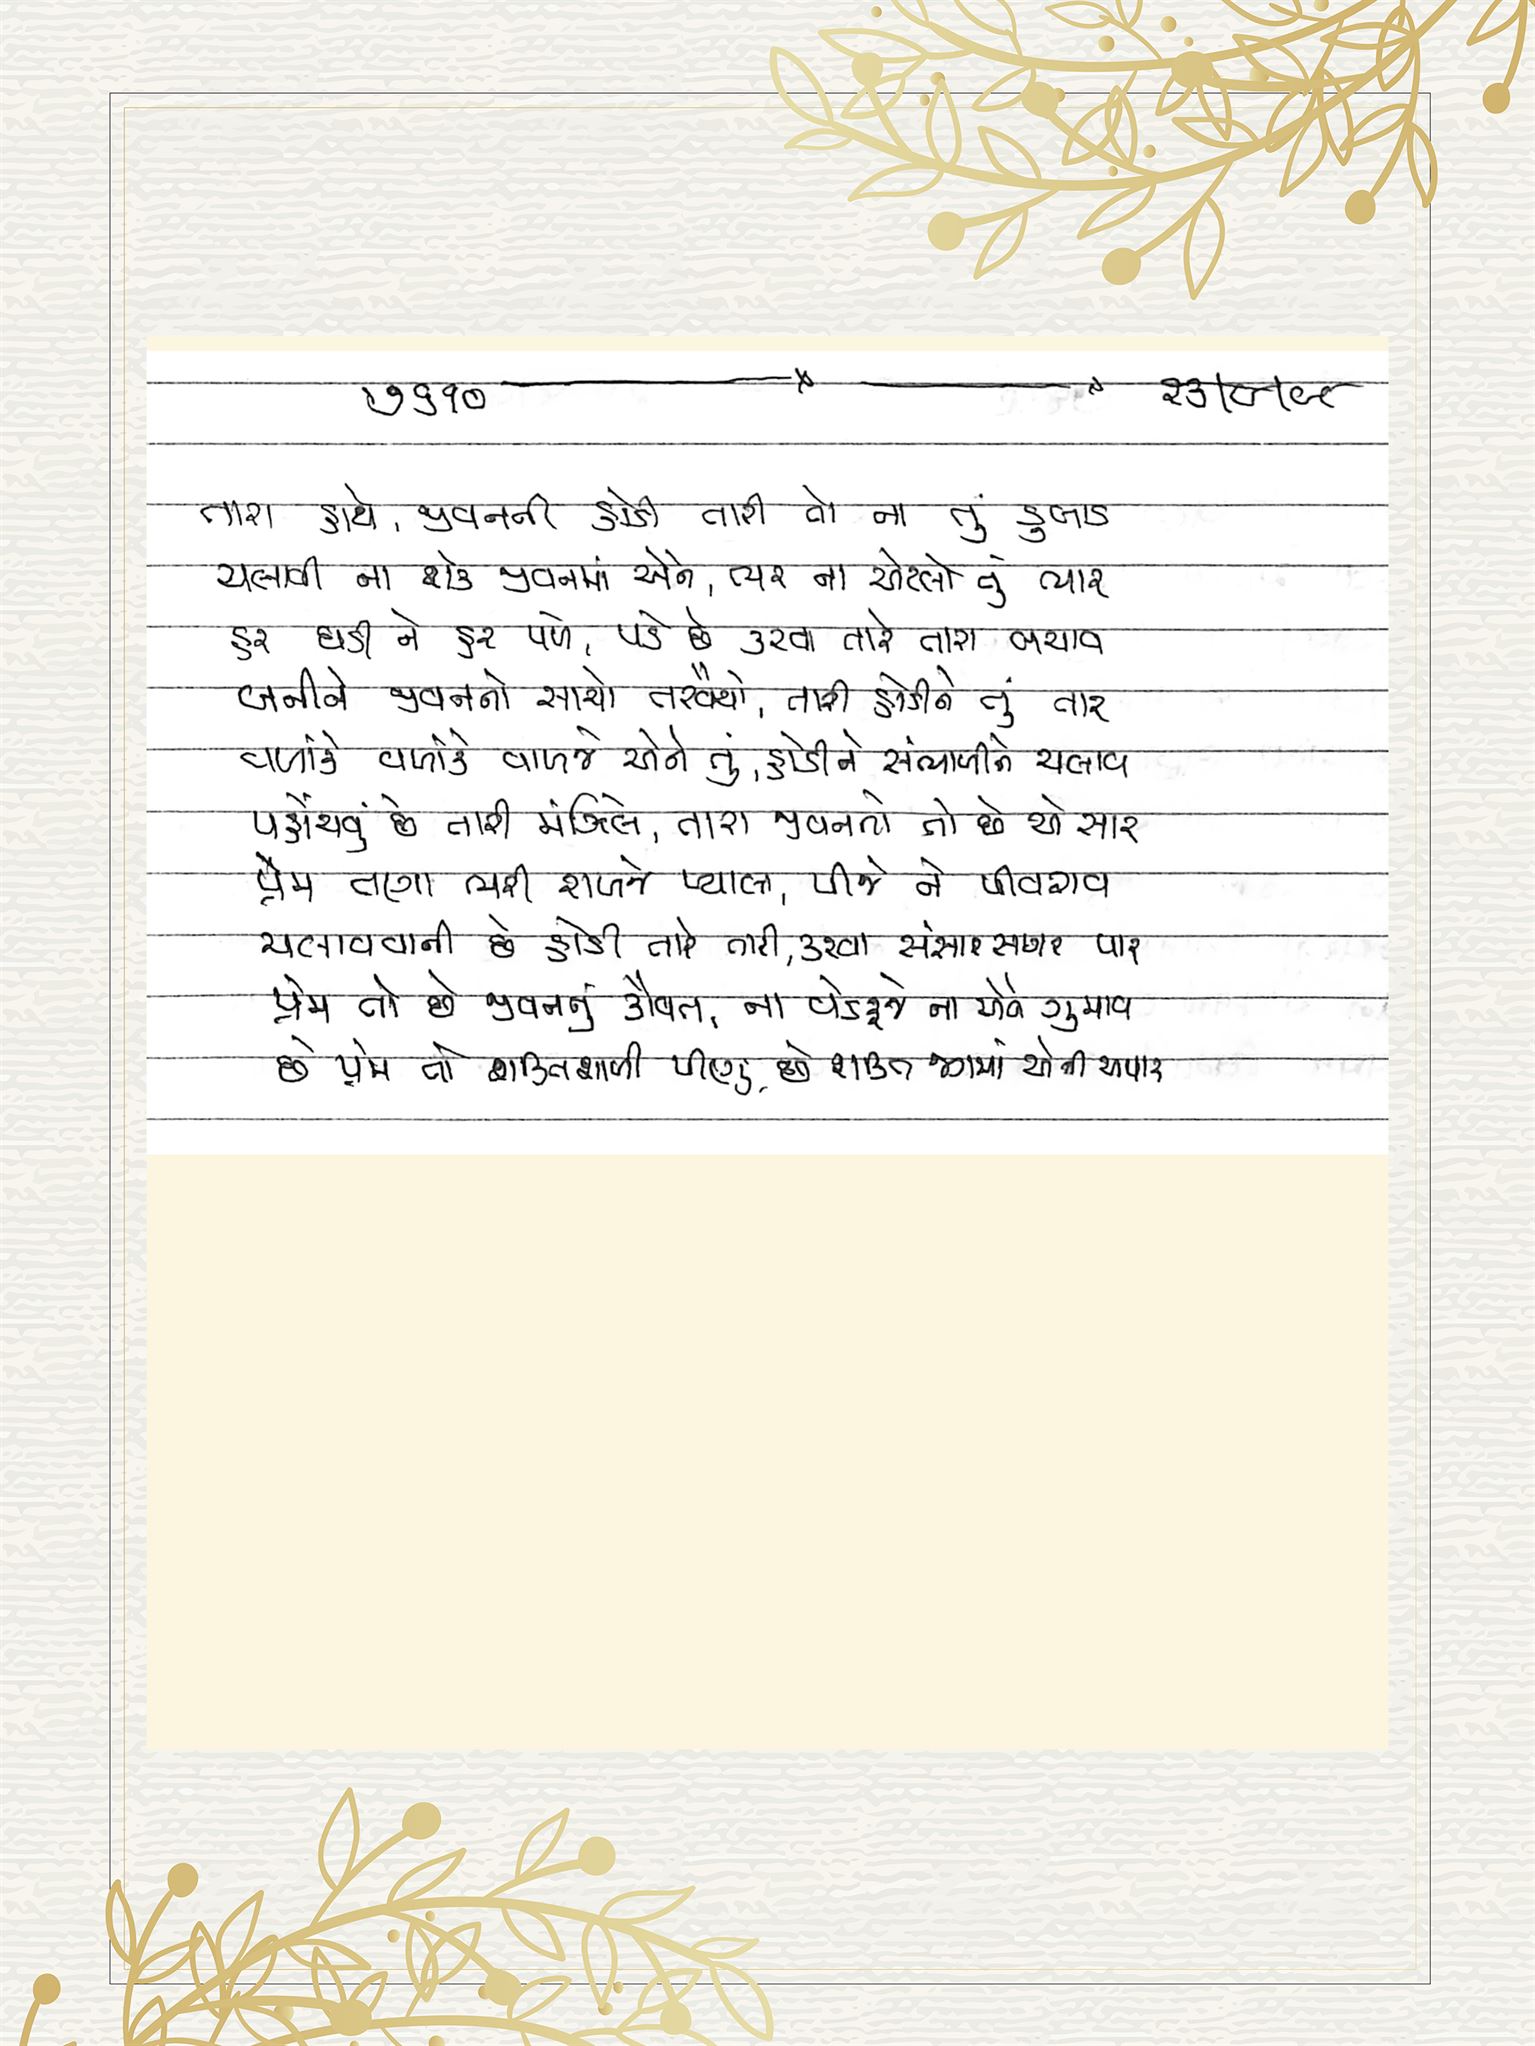 ૭૬૧૦ ૨૩/૯/૯૮
તારા હાથે, જીવનની હોડી તારી તો ના તું ડુબાડ
ચલાવી ના શકે જીવનમાં એને, ભર ના એટલો તું ભાર
હર ઘડી ને હર પળે, પડે છે કરવા તારે તારા બચાવ
બનીને જીવનનો સાચો તરવૈયો, તારી હોડીને તું તાર
વળાંકે વળાંકે વાળજે એને તું, હોડીને સંભાળીને ચલાવ
પહોંચવું છે તારી મંઝિલે, તારા જીવનનો તો છે એ સાર
પ્રેમ તણા ભરી રાખજે પ્યાલા, પીજે ને પીવરાવ
ચલાવવાની છે હોડી તારે તારી, કરવા સંસાર સાગર પાર
પ્રેમ તો છે જીવનનું કૌવત, ના વેડફજે ના એને ગુમાવ
છે પ્રેમ તો શક્તિશાળી પીણું, છે શક્તિ જગમાં એની અપાર